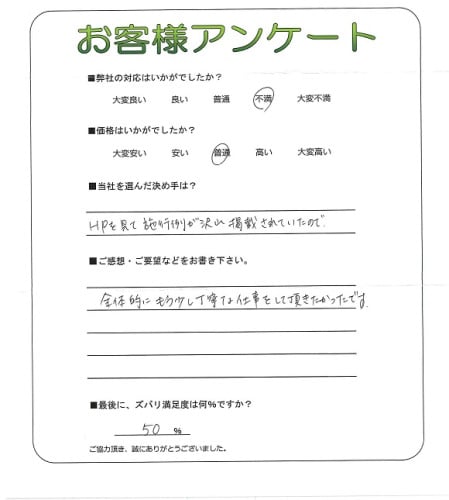 お客様アンケート
■弊社の対応はいかがでしたか？
大変良い 良い 普通 不満 大変不満
■価格はいかがでしたか？
大変安い 安い 普通 高い 大変高い
■当社を選んだ決め手は？
HPを見て施行例が沢山掲載されていたので.
■ご感想・ご要望などをお書き下さい。
全体的にもう少し丁寧な仕事をして頂きたかったです.
■最後に、ズバリ満足度は何%ですか？
50 %
ご協力頂き、誠にありがとうございました。